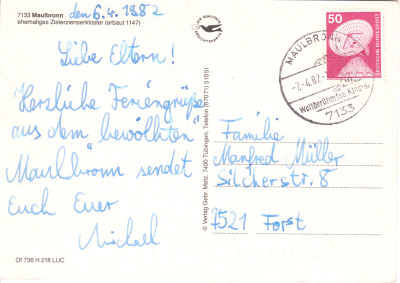 7133 Maulbronn den 6.4.1982
ehemaliges Zisterzienserkloster (erbaut 1147)
Liebe Eltern!
Herzliche Feriengrüße
aus dem bewölkten
Maulbronn sendet
Euch Euer
Michael
Of 736 H 218 LUC
© Verlag Gebr. Metz, 7400 Tübingen, Telefon (07071) 31051
50
DEUTSCHE BUNDESPOST
MAULBRONN
-7.4.82-
Weltberühmtes Kloster
7133
Familie
Manfred Müller
Silcherstr. 8
7521 Forst